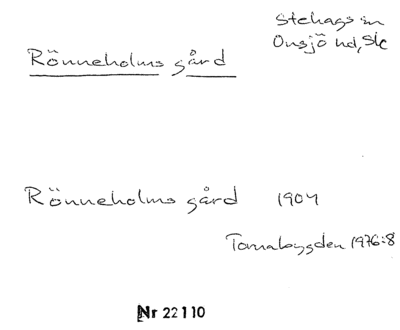 Stehags sn
Onsjö hd, Sk
Rönneholms gård
Rönneholms gård 1904
Tornabygden 1976:8
Nr 22110